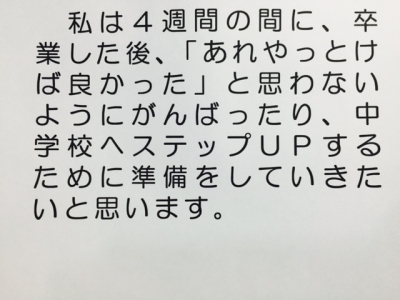 私は４週間の間に、卒
業した後、「あれやっとけ
ば良かった」と思わない
ようにがんばったり、中
学校へステップＵＰする
ために準備をしていきた
いと思います。